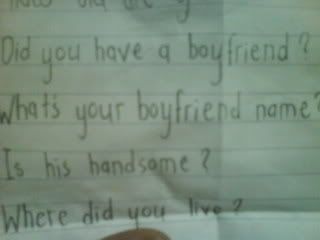 Did you have a boyfriend?
What's your boyfriend name?
Is his handsome?
Where did you live?